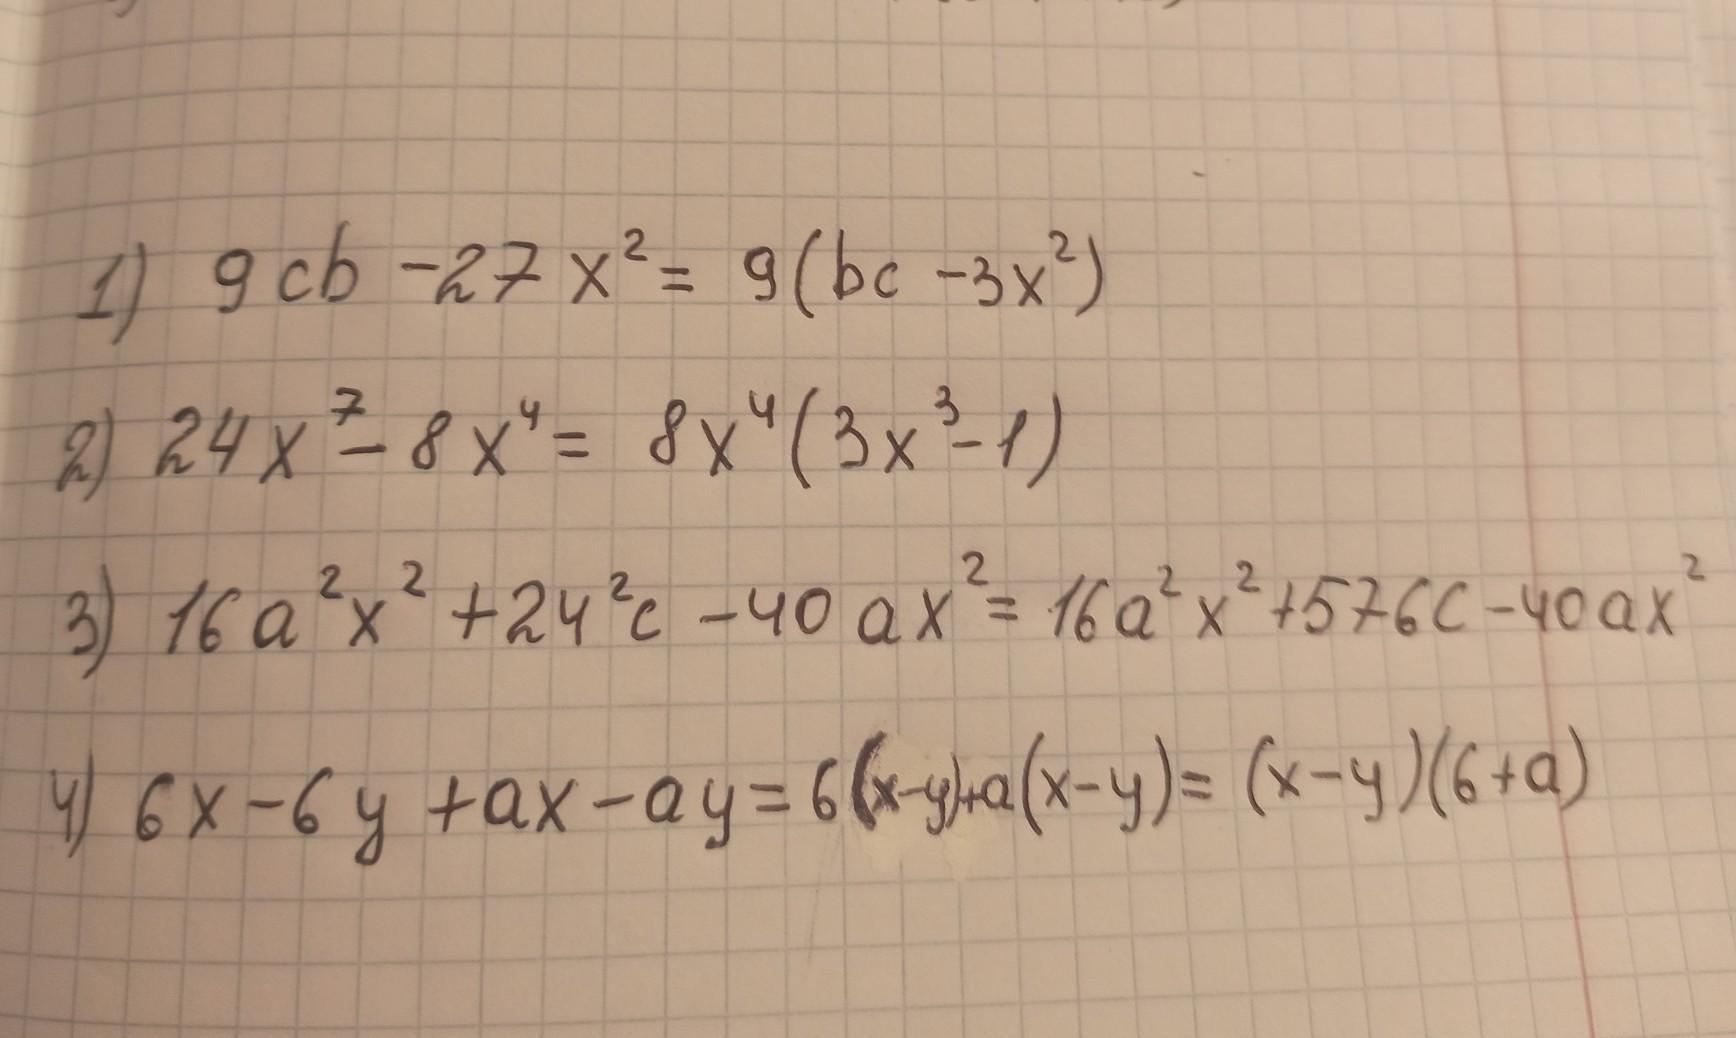 1) 9cb - 27x² = 9(bc - 3x²)
2) 24x⁷ - 8x⁴ = 8x⁴(3x³ - 1)
3) 16a²x² + 24²c - 40ax² = 16a²x² + 576c - 40ax²
4) 6x - 6y + ax - ay = 6(x-y)+a(x-y) = (x-y)(6+a)